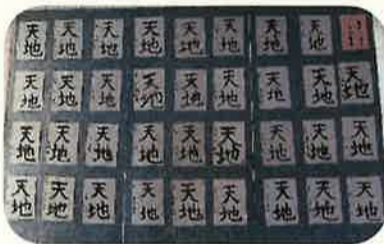 天地 天地 天地 天地 天地 天地 天地 天地
天地 天地 天地 天地 天地 天地 天地 天地 天地
天地 天地 天地 天地 天地 天地 天地 天地 天地
天地 天地 天地 天地 天地 天地 天地 天地 天地